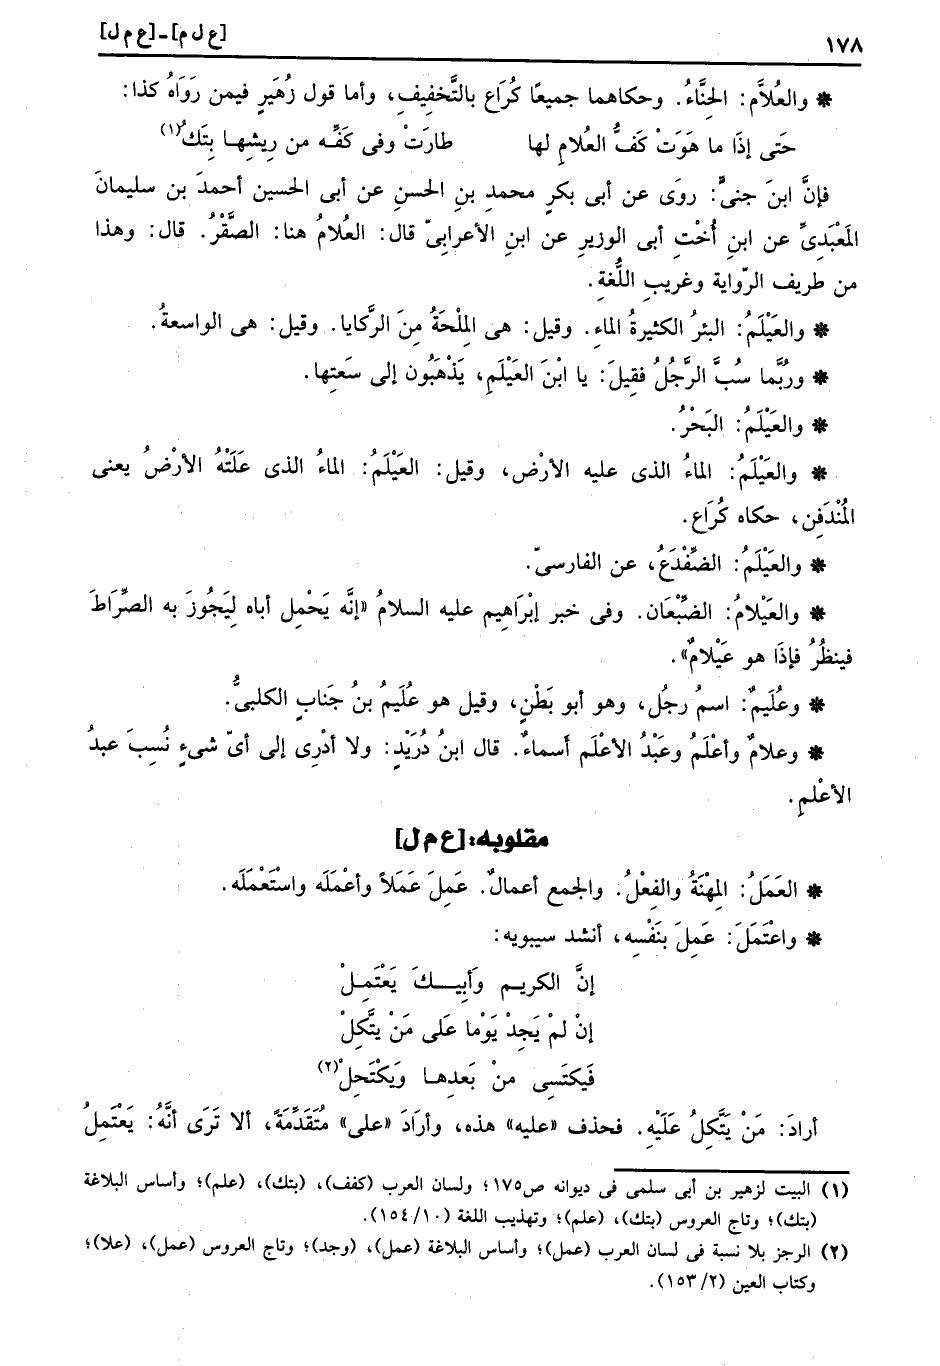 ١٧٨
[ع ل م]ـ[ع م ل]
* والعُلاَّم: الحِنَّاءُ. وحكاهما جميعًا كُرَاع بالتَّخفِيفِ، وأما قول زُهَيرٍ فيمن رَوَاهُ كذا:
حَتى إذَا ما هَوَتْ كَفُّ العُلامِ لها طارَتْ وفى كَفِّه من رِيشِها بِتَكُ(١)
فإنَّ ابنَ جنىٍّ: روَى عن أبى بكرٍ محمدِ بنِ الحسنِ عن أبى الحسين أحمدَ بن سليمانَ
المَعْبَدِىِّ عن ابنِ أُخْتِ أبى الوزيرِ عن ابنِ الأعرابىّ قال: العُلامُ هنا: الصَّقْرُ. قال: وهذا
من طريف الرّواية وغريبِ اللُّغةِ.
* والعَيْلَمُ: البئرُ الكثيرةُ الماءِ. وقيل: هى المِلْحَةُ مِنَ الرَّكايا. وقيل: هى الواسعةُ.
* ورُبَّما سُبَّ الرَّجُلُ فقِيلَ: يا ابْنَ العَيْلَمِ، يَذْهَبُون إلى سَعَتِها.
* والعَيْلَمُ: البَحْرُ.
* والعَيْلَمُ: الماءُ الذى عليه الأرْضِ، وقيل: العَيْلَمُ: الماءُ الذى عَلَتْهُ الأرْضُ يعنى
المُنْدَفِن، حكاه كُرَاع.
* والعَيْلَمُ: الضِّفْدَعُ، عن الفارسىّ.
* والعَيْلامُ: الضِّبْعَان. وفى خبر إبْرَاهِيم عليه السلامُ «إنَّه يَحْمِل أباه لِيَجُوزَ به الصِّرَاطَ
فينظُرُ فإذَا هو عَيْلامٌ».
* وعُلَيمٌ: اسمُ رجُل، وهو أبو بَطْنٍ، وقيل هو عُلَيمُ بنُ جَنابٍ الكلبىُّ.
* وعلامٌ وأعْلَمُ وعَبْدُ الأعْلَم أسماءٌ. قال ابنُ دُرَيْدٍ: ولا أدْرِى إلى أىّ شىءٍ نُسِبَ عبدُ
الأعْلمِ.
مقلوبه: [ع م ل]
* العَمَلُ: المِهنَةُ والفِعْلُ. والجمع أعمالٌ. عَمِلَ عَمَلاً وأعْمَلَه واسْتَعْمَلَه.
* واعْتَمَلَ: عَمِلَ بنَفْسِه، أنشد سيبويه:
إنَّ الكريـم وَأبِيـكَ يَعْتَمِـلْ
إنْ لمْ يَجِدْ يَوْما عَلى مَنْ يتَّكِلْ
فَيكتَسِى مِنْ بَعدِهـا وَيَكْتَحِلْ(٢)
أرادَ: مَنْ يَتَّكِلُ عَلَيْهِ. فحذف «عليه» هذه، وأرَادَ «على» مُتَقَدِّمَةً، ألا تَرَى أنَّهُ: يَعْتَمِلُ
(١) البيت لزهير بن أبى سلمى فى ديوانه ص١٧٥؛ ولسان العرب (كفف)، (بتك)، (علم)؛ وأساس البلاغة
(بتك)؛ وتاج العروس (بتك)، (علم)؛ وتهذيب اللغة (١٥٤/١٠).
(٢) الرجز بلا نسبة فى لسان العرب (عمل)؛ وأساس البلاغة (عمل)، (وجد)؛ وتاج العروس (عمل)، (علا)؛
وكتاب العين (١٥٣/٢).